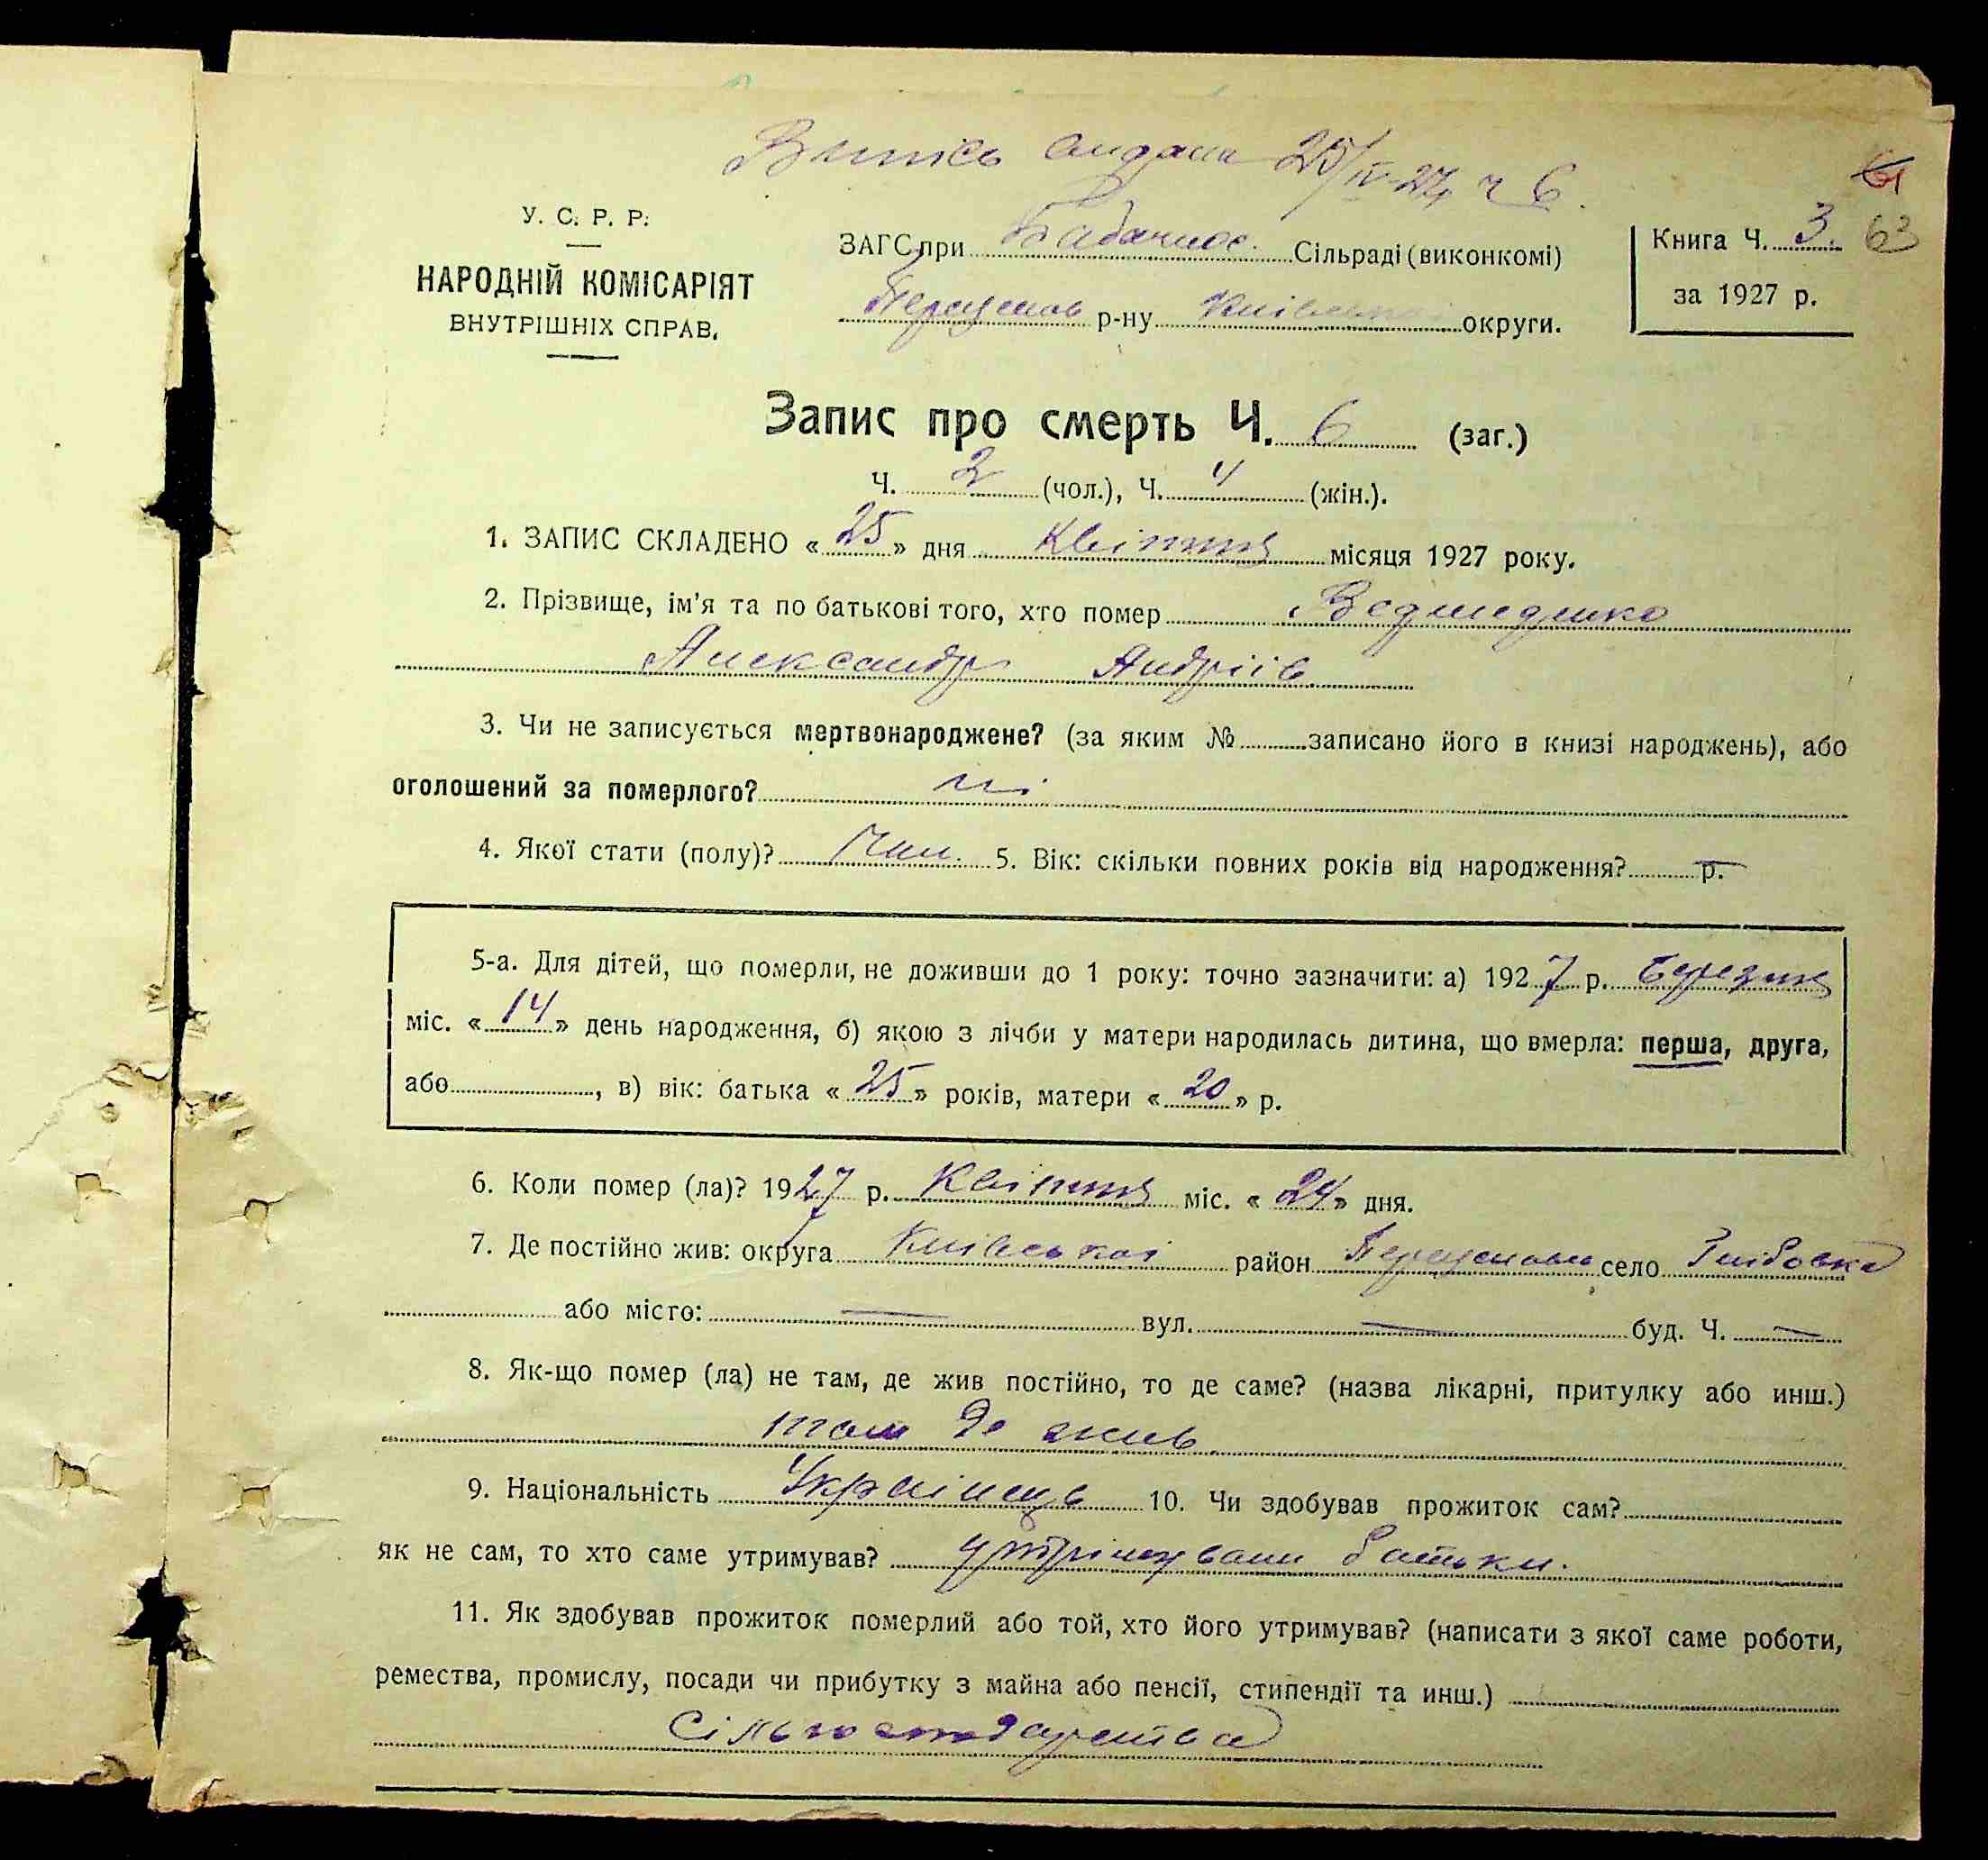 Випісь видана 25/IV-27 ч 6.
61
63
У. С. Р. Р.
НАРОДНІЙ КОМІСАРІЯТ
ВНУТРІШНІХ СПРАВ.
ЗАГС при Бабачков. Сільраді (виконкомі)
р-ну Київської округи.
Книга Ч. 3.
за 1927 р.
Запис про смерть Ч. 6 (заг.)
Ч. 2 (чол.), Ч. 4 (жін.).
1. ЗАПИС СКЛАДЕНО « 25 » дня Квітня місяця 1927 року.
2. Прізвище, ім'я та по батькові того, хто помер Ведмеденко
Александр Андріів
3. Чи не записується мертвонароджене? (за яким № записано його в книзі народжень), або
оголошений за померлого? ні
4. Якої стати (полу)? Чол. 5. Вік: скільки повних років від народження? — р.
5-а. Для дітей, що померли, не доживши до 1 року: точно зазначити: а) 1927 р. Березня
міс. « 14 » день народження, б) якою з лічби у матери народилась дитина, що вмерла: перша, друга,
або , в) вік: батька « 25 » років, матери « 20 » р.
6. Коли помер (ла)? 1927 р. Квітня міс. « 24 » дня.
7. Де постійно жив: округа Київської район село
або місто: — вул. — буд. Ч. —
8. Як-що помер (ла) не там, де жив постійно, то де саме? (назва лікарні, притулку або инш.)
там де жив
9. Національність Україնець 10. Чи здобував прожиток сам?
як не сам, то хто саме утримував? утрімували батьки.
11. Як здобував прожиток померлий або той, хто його утримував? (написати з якої саме роботи,
ремества, промислу, посади чи прибутку з майна або пенсії, стипендії та инш.)